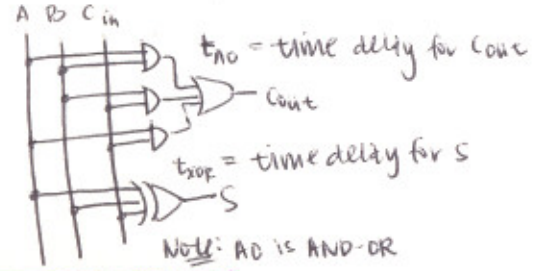 A B Cin
tAO = time delay for Cout
Cout
tXOR = time delay for S
S
Note: AO is AND-OR